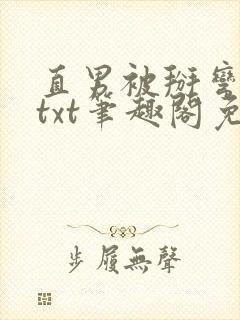 直男被掰彎
txt笔趣阁免
步履無聲